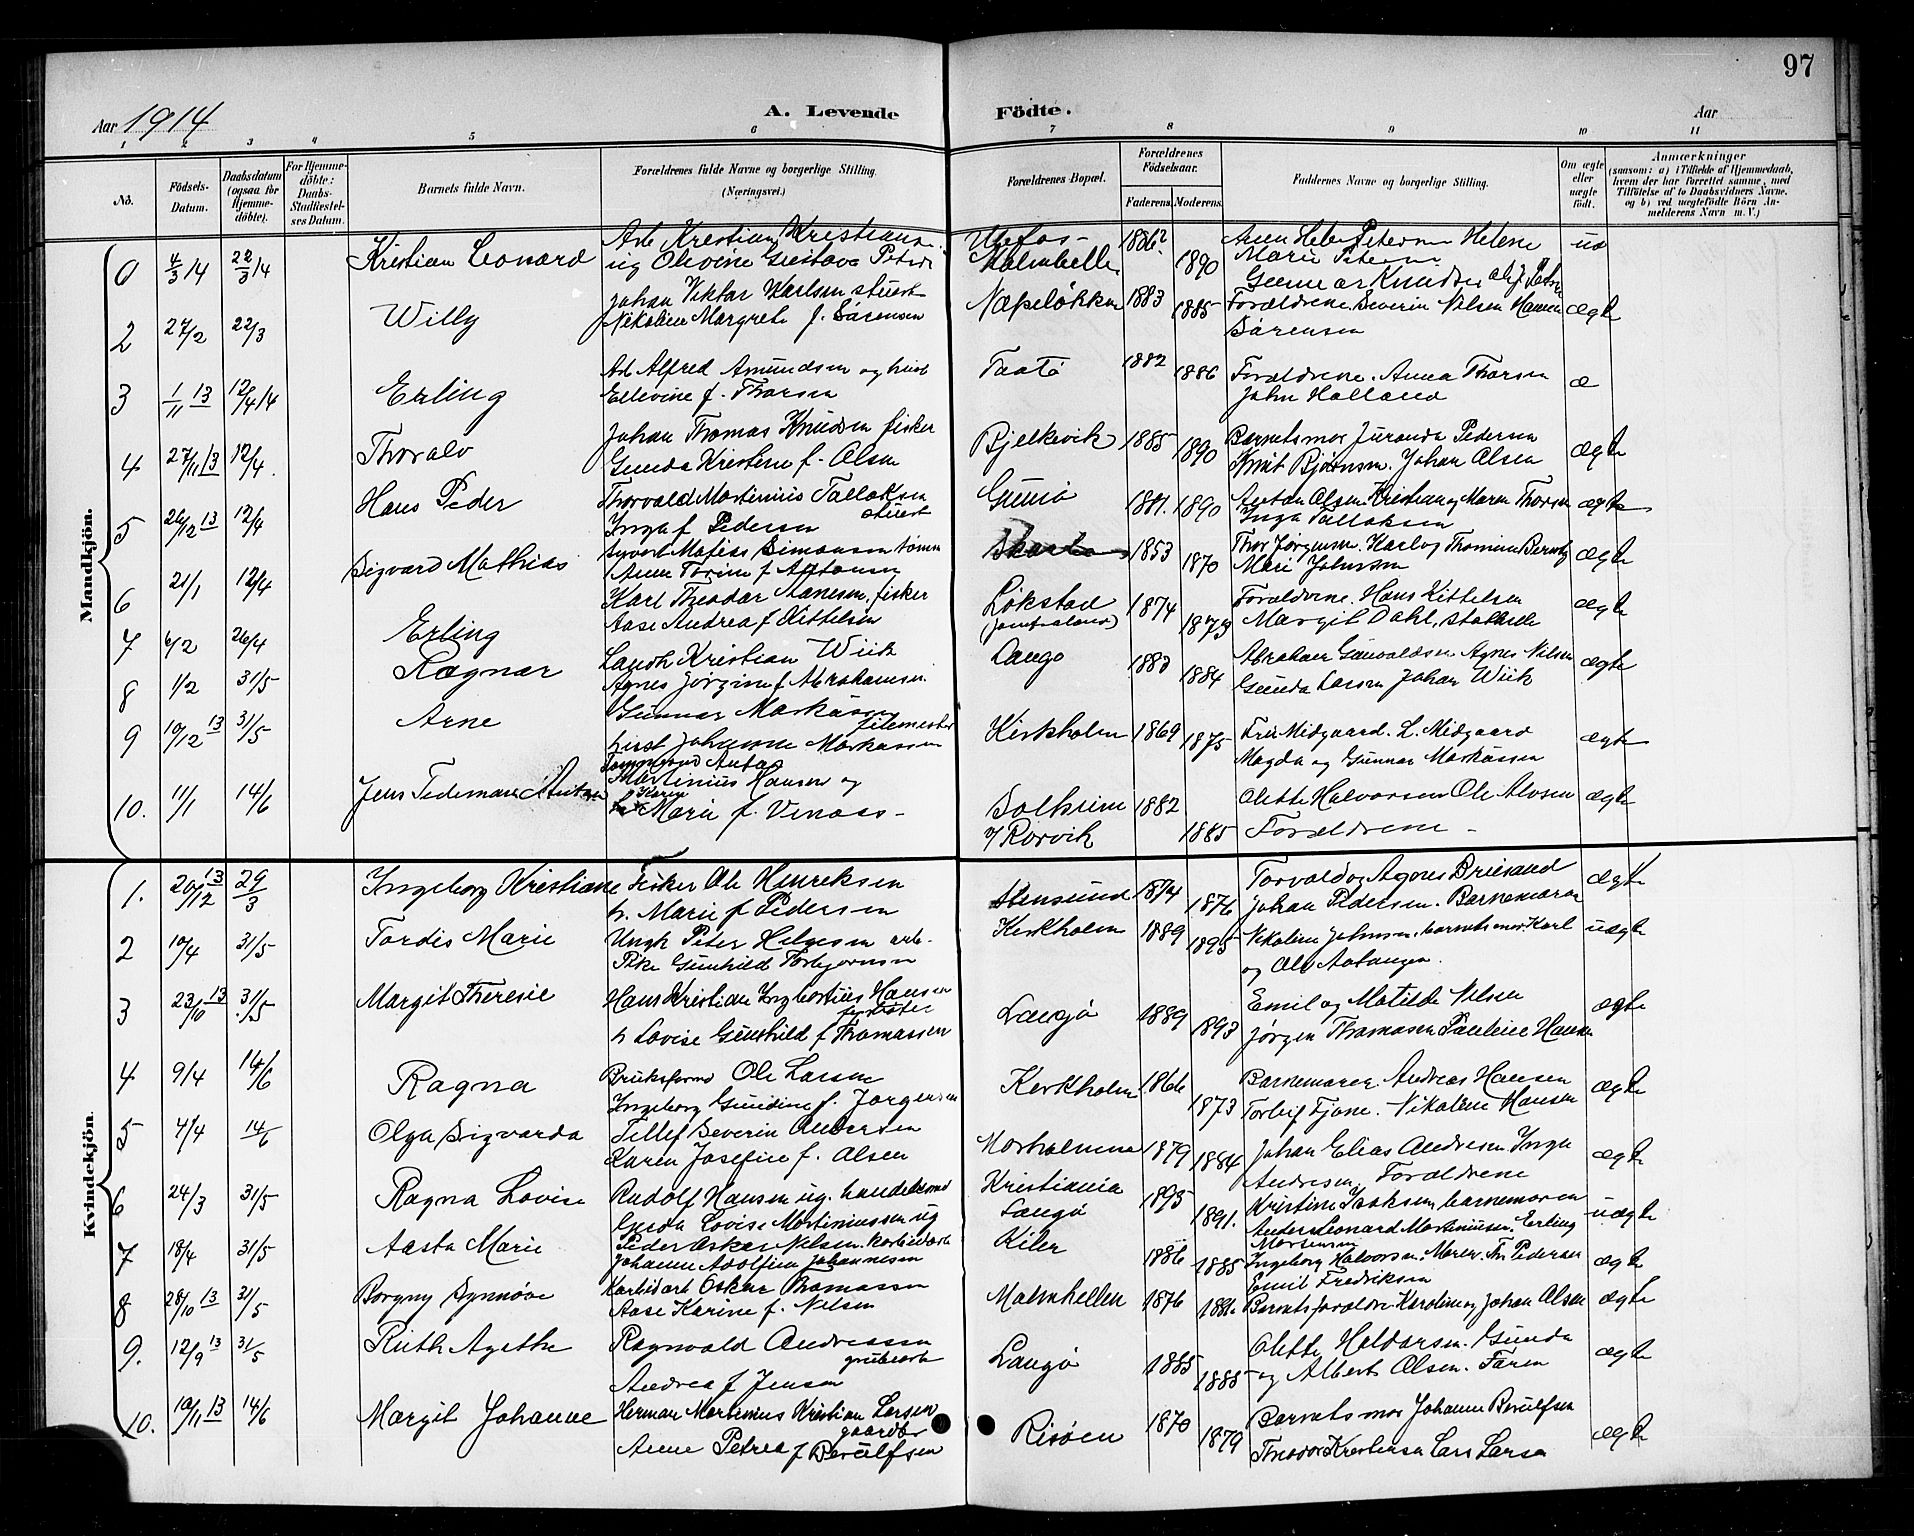 97
Aar 1914
A. Levende Födte.
Aar
1 2 3 4 5 6 7 8 9 10 11
No.
Födsels-Datum.
Daabsdatum (ogsaa for Hjemme-döbte).
For Hjemme-döbte: Daabs-Stadfæstel-ses Datum.
Barnets fulde Navn.
Forældrenes fulde Navne og borgerlige Stilling. (Næringsvei.)
Forældrenes Bopæl.
Forældrenes Födselsaar.
Faderens. Moderens.
Faddernes Navne og borgerlige Stilling.
Om ægte eller uægte födt.
Anmærkninger
(saasom: a) i Tilfælde af Hjemmedaab, hvem der har forrettet samme, med Tilföielse af to Daabsvidners Navne, og b) ved uægtefödte Börn An-melderens Navn m. V.)
Mandkjön.
0 4/3 14 22/3 14 Kristian Leonard Arb Kristian Kristians
ug Olivine Gustava Peters 1886? 1890 Marie Peters
2 27/2 22/3 Willy Johan Viktor Karlsen stuert
Nikoline Margrete f. Sørensen 1883 1885 Forældrene. Severin Nilsen Hanna
Sørensen ægte
3 1/11 13 12/4 14 Erling Arb Alfred Amundsen og hust
Ellevine f. Thorsen Taatø 1882 1886 Forældrene. Anna Thorsen
John Holland æ
4 27/11 13 12/4. Thoralv Johan Thomas Knudsen fisker
Gunda Kristine f. Olsen Bjelkevik 1885 1890 Barnets mor Juranda Pedersen
Knut Bjørnsen. Johan Olsen ægte
5 26/12 13 12/4 Hans Peder Thorvald Martinius Tallaksen
stuert
Inga f Pedersen Gumø 1881. 1890 Anton Olsen. Kristian og Maren Thorsen
Inga Tallaksen ægte
6 21/1 12/4 Sigvard Mathias Sigvart Matias Simonsen tømm
Anne Torine f Antonsen 1853 1870 Thor Jørgensen. Karl og Thomine Berntz
Marie Johnsen ægte
7 6/2 26/4 Erling Karl Theodor Hansen. fisker
Aase Andrea f Kittelsen Løkstad 1874 1873 Forældrene. Hans Kittelsen
Margit Dahl, Stabbestd ægte
8 1/2 31/5 Ragnar Landh Kristian Wiik
Agnes Jørgine f Abrahamsen Langø 1883 1884 Abraham Gunvaldsen Agnes Nilsen
Gunda Larsen Johan Wiik ægte
9 10/12 13 31/5 Arne Gunnar Markussen
filemester
hust Johanne Markussen Kirkholm 1869 1875 Fru Midgaard. L. Midgaard
Magda og Gunnar Markussen ægte
10. 11/1 14/6 Jens Tedeman Anton
Martinius Hansen og
Karen
Marie f. Venaas Solheim
v/ Rorvik 1882 1885 Olette Halvorsen Ole Alvsen
Forældrene ægte
Kvindekjön.
1. 20/12 13 29/3 Ingeborg Kristiane Fisker Ole Henriksen
h. Marie f Pedersen Stensund 1874 1876 Torvald og Agnes Briesand
Johan Pedersen. Barnemoren ægte
2 10/4 31/5 Tordis Marie Ungk Peter Helgesen arb.
Pike Gunhild Torbjørnsen Kirkholm 1889 1895 Nikoline Johnsen, barnets mor Karl
og Ole Aatangen. uægte
3 23/10 13 31/5 Margit Theresie Hans Kristian Ingbertius Hansen
h Lovise Gunhild f Thomassen Langø 1889 1893 Emil og Matilde Nilsen
Jørgen Thomassen Pauline Hansen ægte
4 9/4 14/6 Ragna Bruksformd Ole Larsen
Ingeborg Gundine f. Jørgensen Kirkholm 1866 1873 Barnemoren. Andreas Hansen
Torleif Tjøne. Nikoline Hansen ægte
5 4/4 14/6 Olga Sigvarda Tellef Severin Andersen
Karen Josefine f. Olsen 1879 1884 Johan Elias Andresen Inga
Andresen, Forældrene ægte
6 24/3 31/5 Ragna Lovise Rudolf Hansen ug. handelsmd
Gerda Lovise Mortiniussen ug Kristiania
Langø 1895 1891. Kristine Isaksen, barnemoren
Anders Leonard Martiniussen. Erling
Mortensen uægte
7 18/4 31/5 Aasta Marie Peder Oskar Nilsen. karbidarb
Johanne Adolfine Johannesen Kiler 1886 1885 Ingeborg Halvorsen. Maren. Th Pedersen
Emil Fredriksen ægte
8 28/10 13 31/5 Borgny Synnøve Karbidarb Oskar Thomassen
Aase Karine f. Nilsen Malmhellen 1876 1886 Barnets forældre. Karoline og Johan Olsen ægte
9. 12/9 13 31/5 Ruth Agathe Ragnvald Andreassen
grubearb
Andrea f Jensen Langø 1885 1885 Olette Haldorsen. Gunda
og Albert Olsen. Faren ægte
10. 10/11 13 14/6 Margit Johanne Herman Martinius Kristian Larsen
gaardbr
Anne Petrea f Berulfsen Risøen 1870 1879 Barnets mor Johanne Berulfsen
Theodor Kristensen Lars Larsen ægte